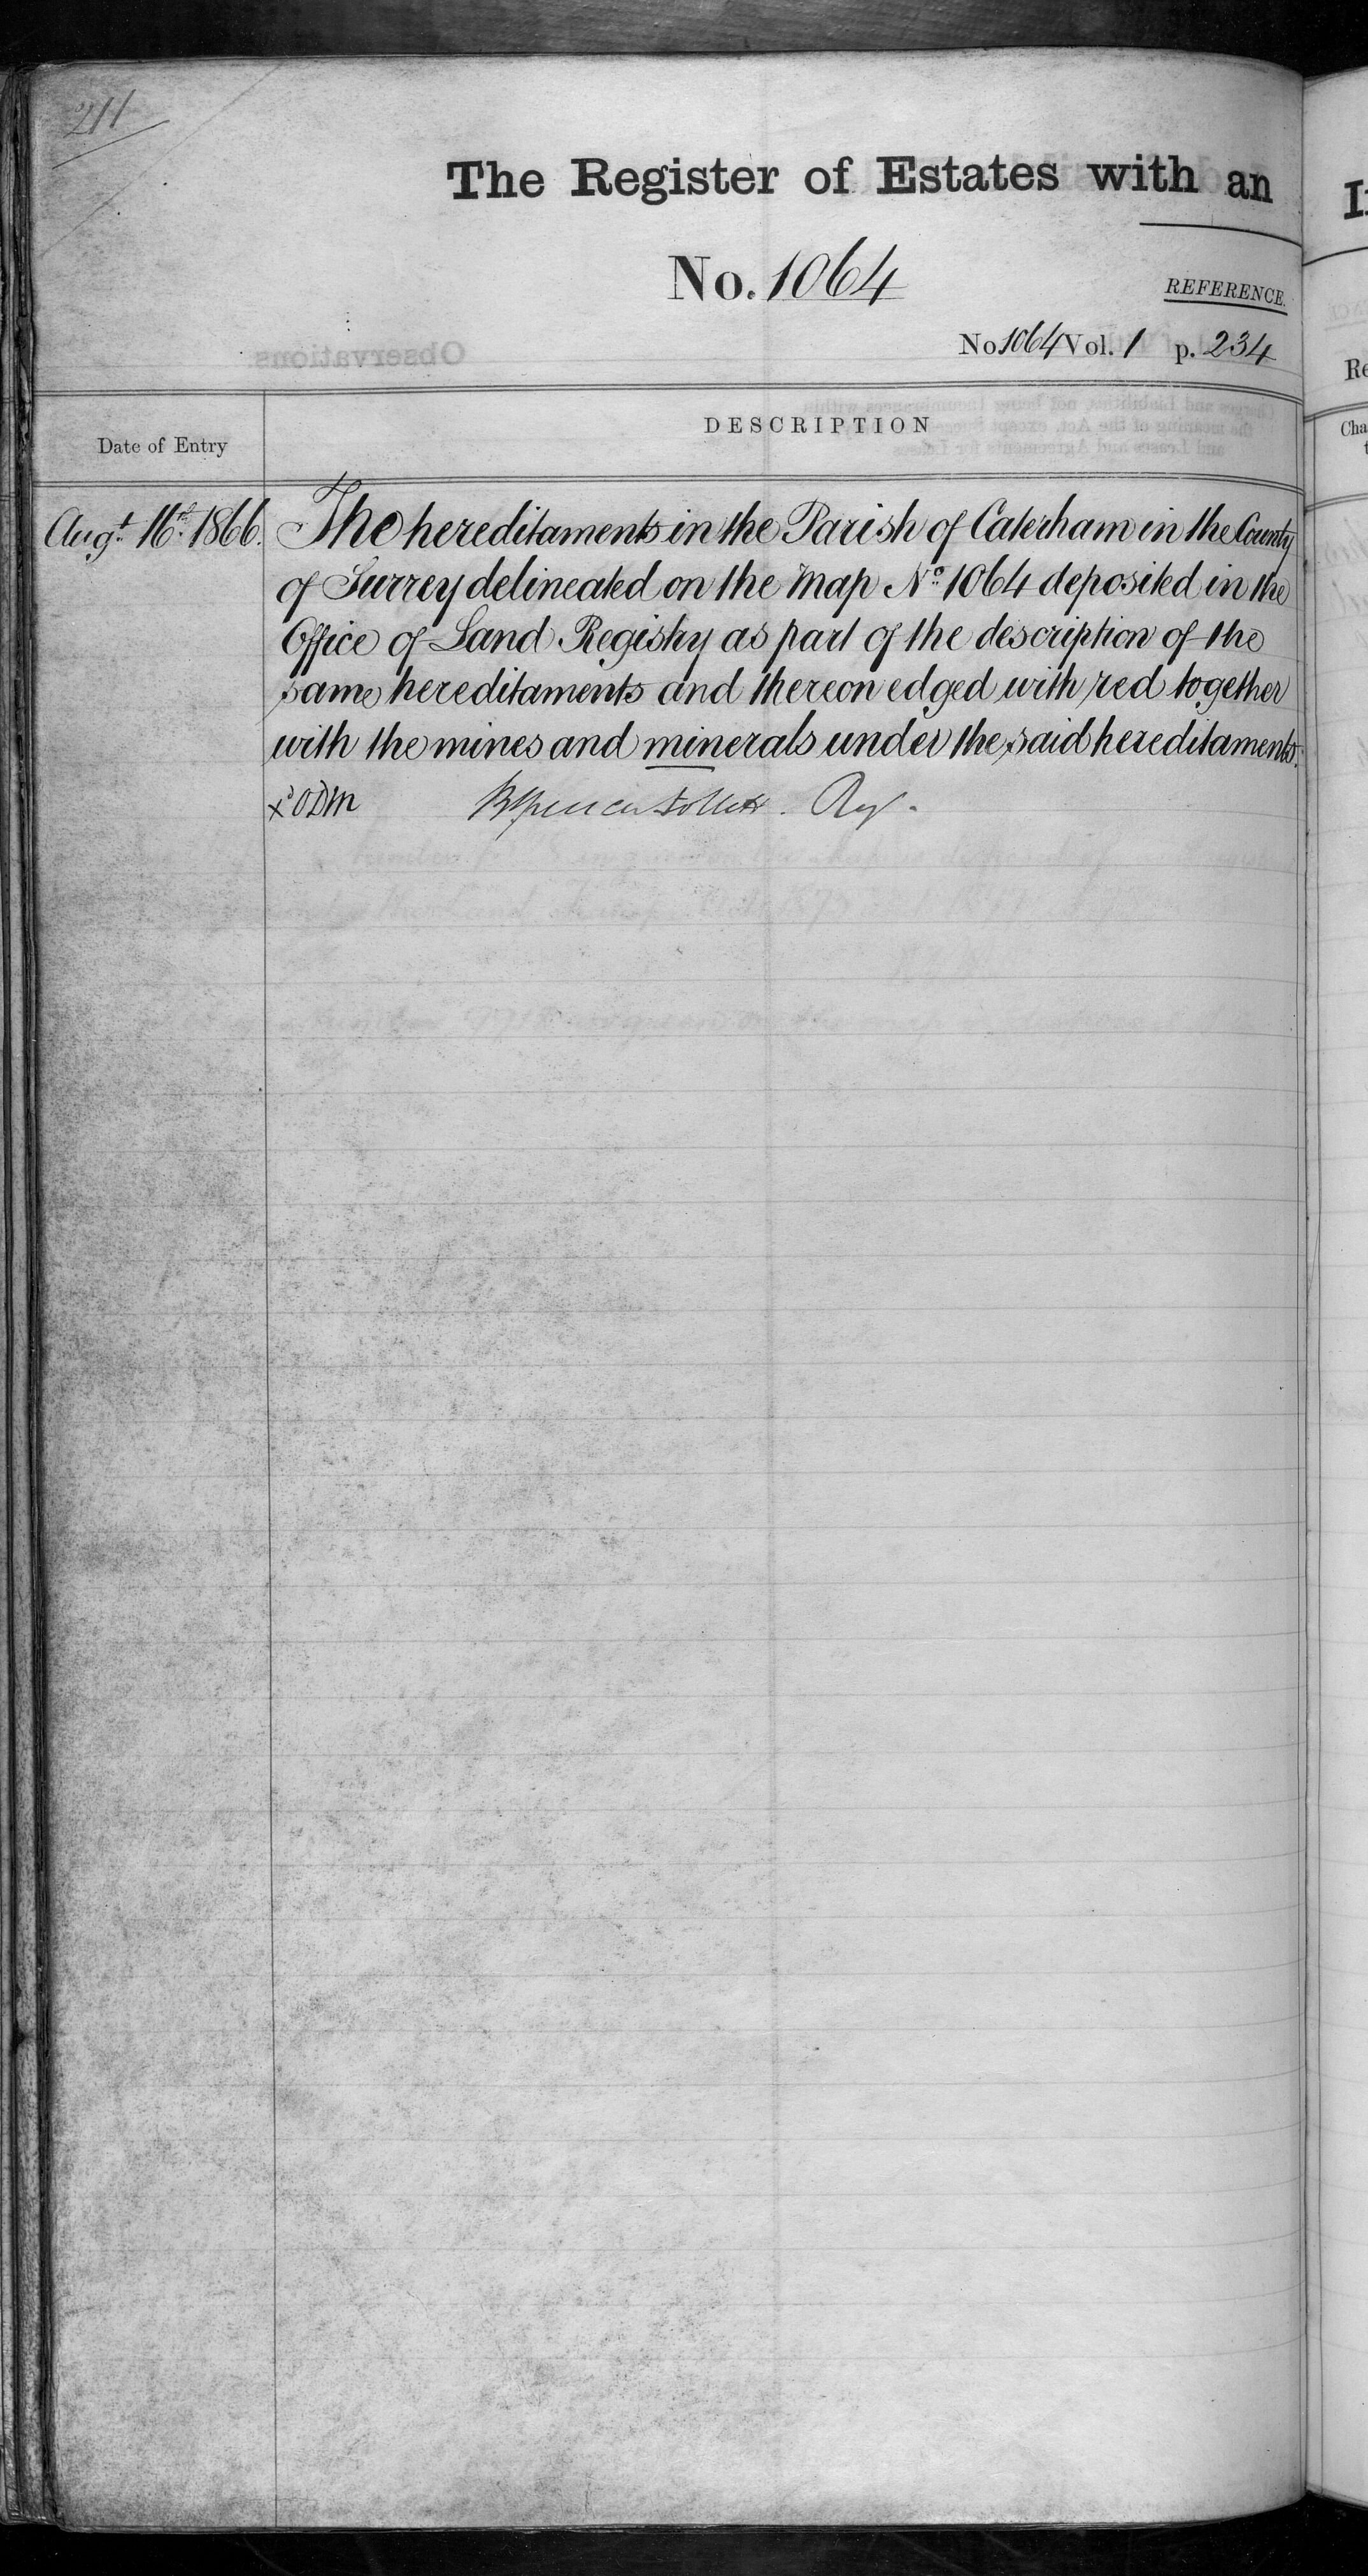 211
The Register of Estates with an
No. 1064
REFERENCE.
No 1064 Vol. 1 p. 234
Date of Entry
DESCRIPTION
Augt. 16th 1866. The hereditaments in the Parish of Caterham in the County
of Surrey delineated on the Map No. 1064 deposited in the
Office of Land Registry as part of the description of the
same hereditaments and thereon edged with red together
with the mines and minerals under the said hereditaments.
xd ODM Brent Spencer Follett. Reg.